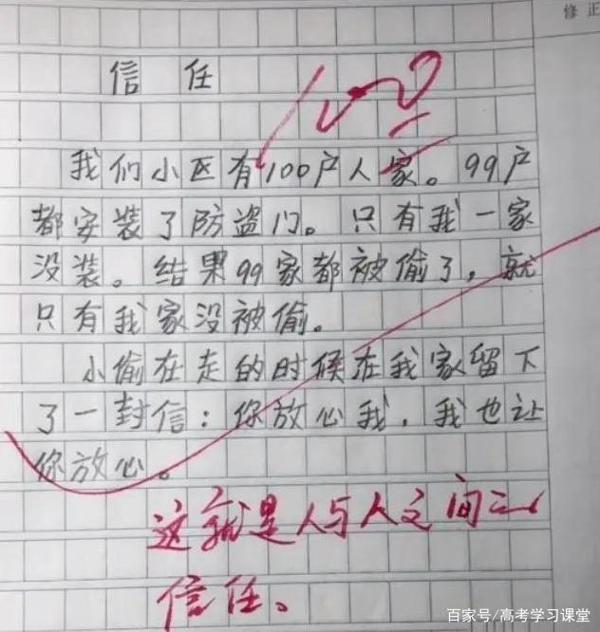 修正
信任
我们小区有100户人家。99户
都安装了防盗门。只有我一家
没装。结果99家都被偷了，就
只有我家没被偷。
小偷在走的时候在我家留下
了一封信：你放心我，我也让
你放心。
这就是人与人之间
信任。
百家号/高考学习课堂